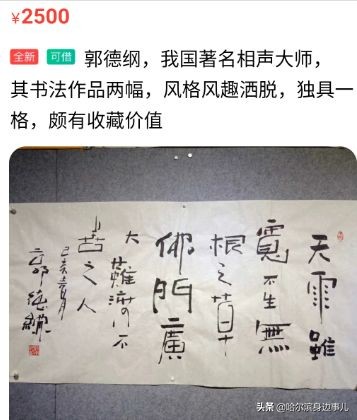 ¥2500
全新 可借 郭德纲，我国著名相声大师，
其书法作品两幅，风格风趣洒脱，独具一
格，颇有收藏价值
天雨雖
寬不生無
根之草
佛門廣
大難渡不
善之人
己亥
郭德綱
头条 @哈尔滨身边事儿